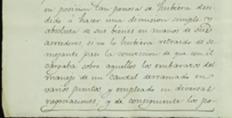 en posicion tan penosa se hubiera de
dido a hacer una dimision simple y
absoluta de sus bienes en manos de sus
acreedores si no le hubiera retraido se
mejante paso la conviccion de que con el
cargaba sobre aquellos los embarazos del
manejo de un caudal derramado en
varios puntos y empleado en diversas
negociaciones, y de consiguiente los po-